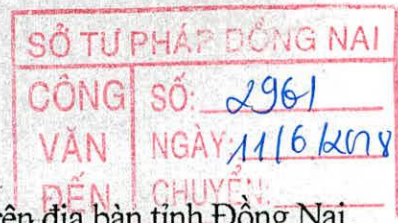 SỞ TƯ PHÁP ĐỒNG NAI
CÔNG VĂN ĐẾN
SỐ: 2961
NGÀY: 11/6/2018
CHUYỂN:
rên địa bàn tỉnh Đồng Nai